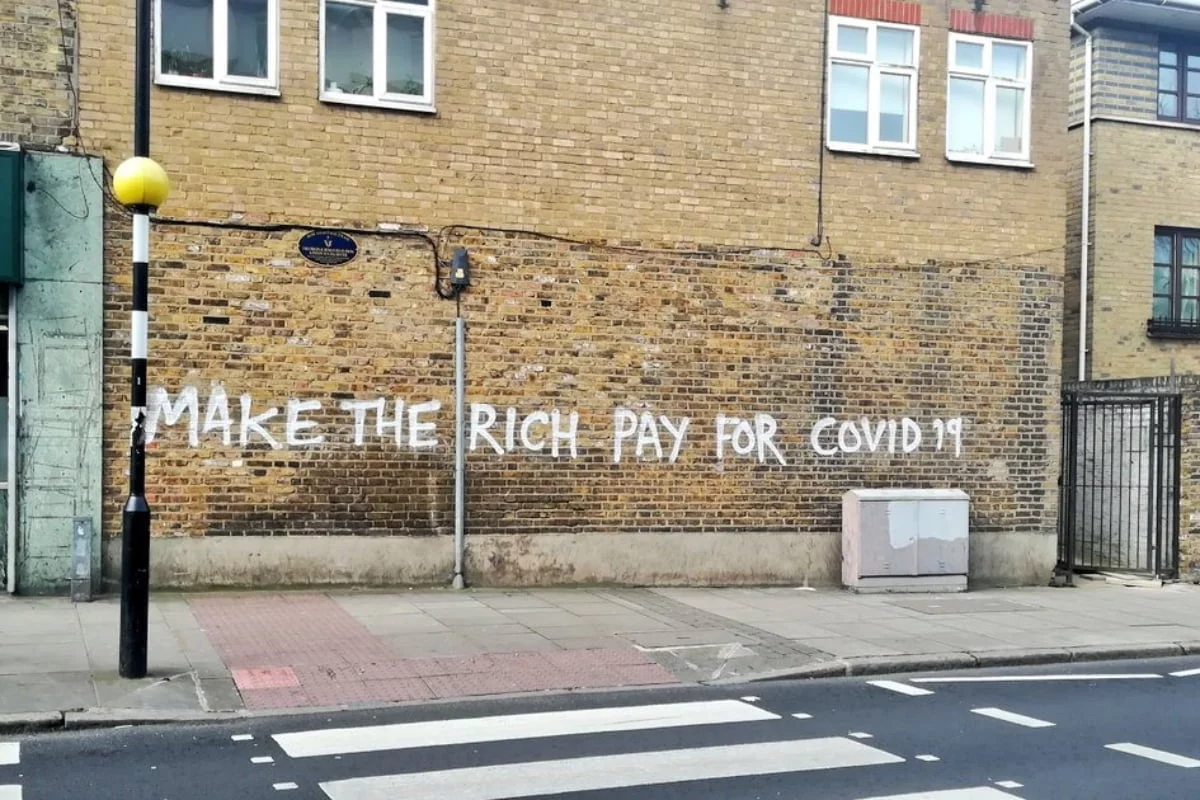 MAKE THE RICH PAY FOR COVID 19